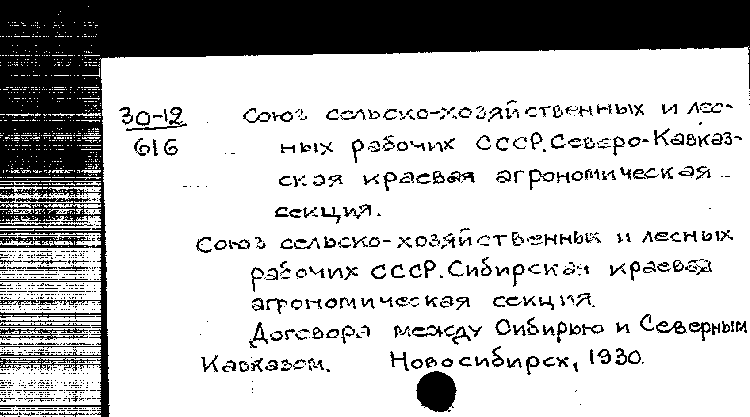 30-12 Союз сельско-хозяйственных и лес-
616 ных рабочих СССР. Северо-Кавказ-
ская краевая агрономическая
секция.
Союз сельско-хозяйственных и лесных
рабочих СССР. Сибирская краевая
агрономическая секция.
Договора между Сибирью и Северным
Кавказом. Новосибирск, 1930.